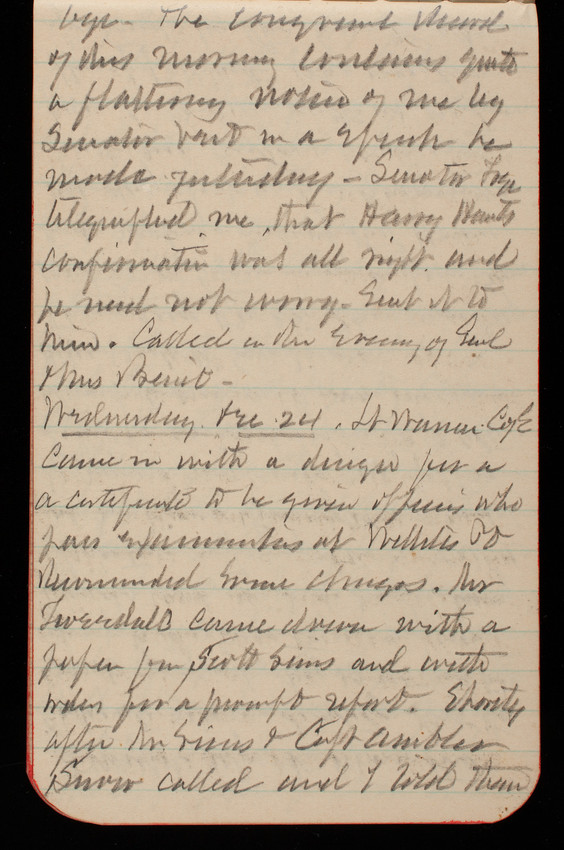 The Congress Record
of this morning contains quite
a flattering notice of me by
Senator Vest in a speech he
made yesterday - Senator
telegraphed me, that Harry
confirmation was all right and
he need not worry. Sent it to
him. Called in the Evening of Genl
& Mrs Benet -
Wednesday. Dec. 24. Lt Warren
came in with a design for a
a certificate to be given officers who
pass examination at Willets Pt
Recommended some changes. Mr
Tweedale came down with a
paper from Scott Sims and with
order for a prompt report. Shortly
after Mr Sims & Capt Ambler
Snow called and I told them